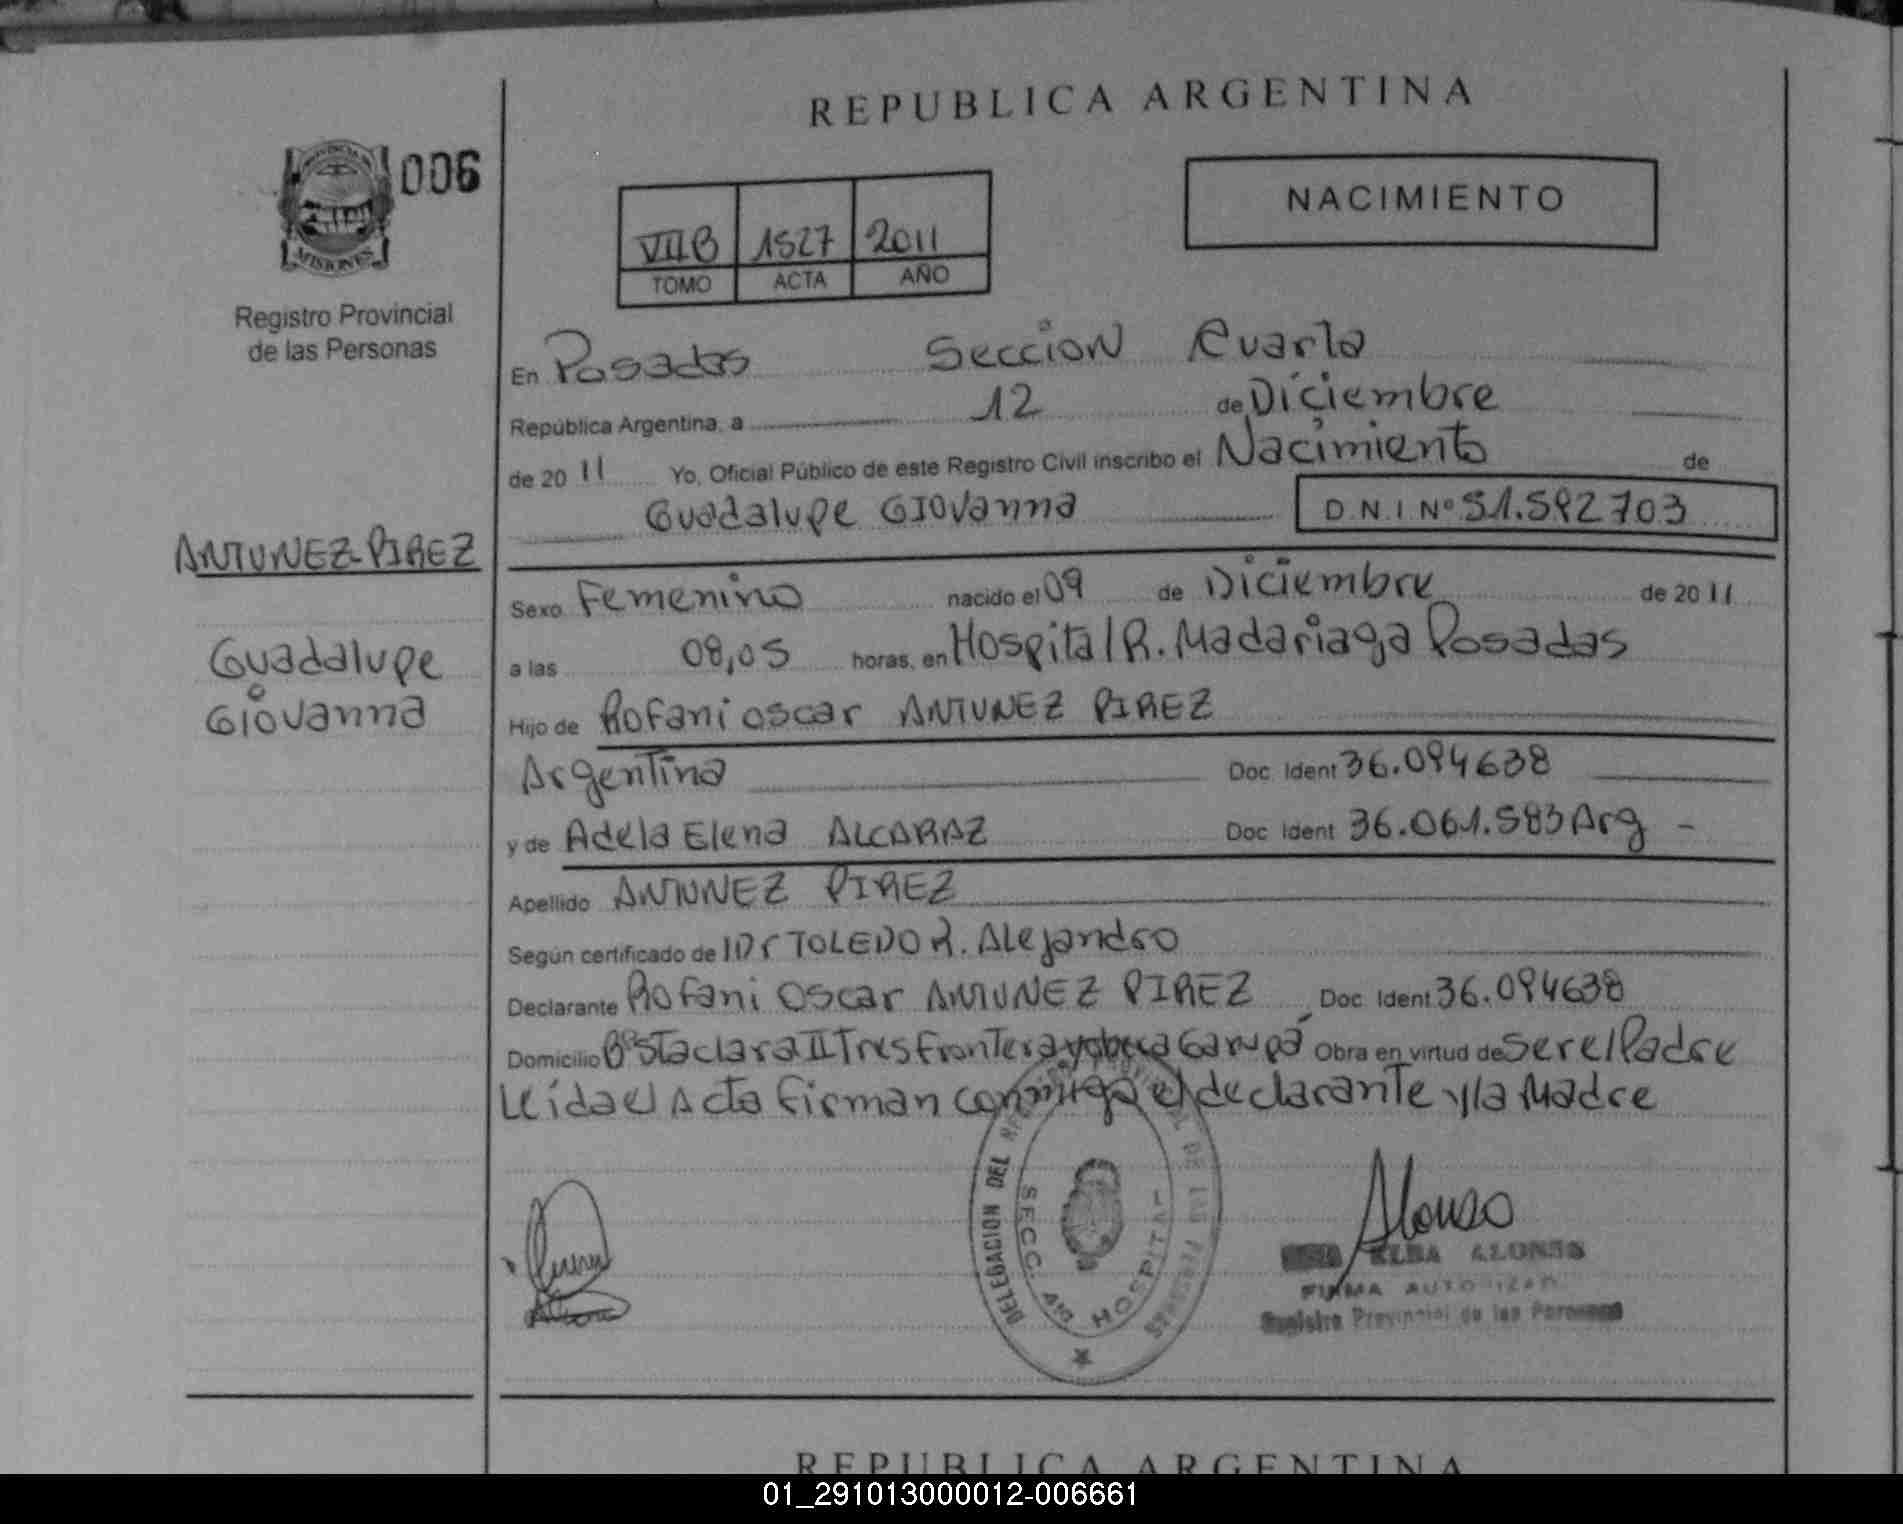 REPUBLICA ARGENTINA
006
NACIMIENTO
PROVINCIA DE
MISIONES
VII B 1527 2011
TOMO ACTA AÑO
Registro Provincial
de las Personas
En Posadas Seccion Cuarta
República Argentina, a 12 de Diciembre
de 20 11 Yo, Oficial Público de este Registro Civil inscribo el Nacimiento de
Guadalupe GIOvanna D.N.I Nº 51.592703
ANTUNEZ-PIREZ
Sexo Femenino nacido el 09 de Diciembre de 20 11
Guadalupe
Giovanna
a las 08,05 horas, en Hospital R. Madariaga Posadas
Hijo de Rofani oscar ANTUNEZ PIREZ
Argentina Doc Ident 36.094638
y de Adela Elena ALCARAZ Doc Ident 36.061.583 Arg -
Apellido ANTUNEZ PIREZ
Según certificado de Dr TOLEDO R. Alejandro
Declarante Rofani Oscar ANTUNEZ PIREZ Doc Ident 36.094638
Domicilio Bº Sta clara II Tres Frontera y Garupá Obra en virtud de Ser el Padre
Leida el Acta firman conmigo el declarante y la Madre
DELEGACION DEL REGISTRO PROVINCIAL DE LAS PERSONAS
SECC. 4ta HOSPITAL
Alonso
ELBA ALONSO
FIRMA AUTORIZADA
Registro Provincial de las Personas
REPUBLICA ARGENTINA
01_291013000012-006661